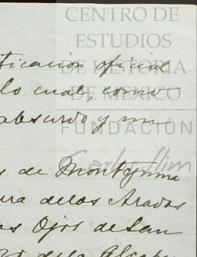 CENTRO DE
ESTUDIOS
DE HISTORIA
DE MÉXICO
FUNDACIÓN
Carlos Slim
tificacion oficial
lo cual, como
absurdo y un
s de Montezuma
ra de los Arados
os Ojos de San